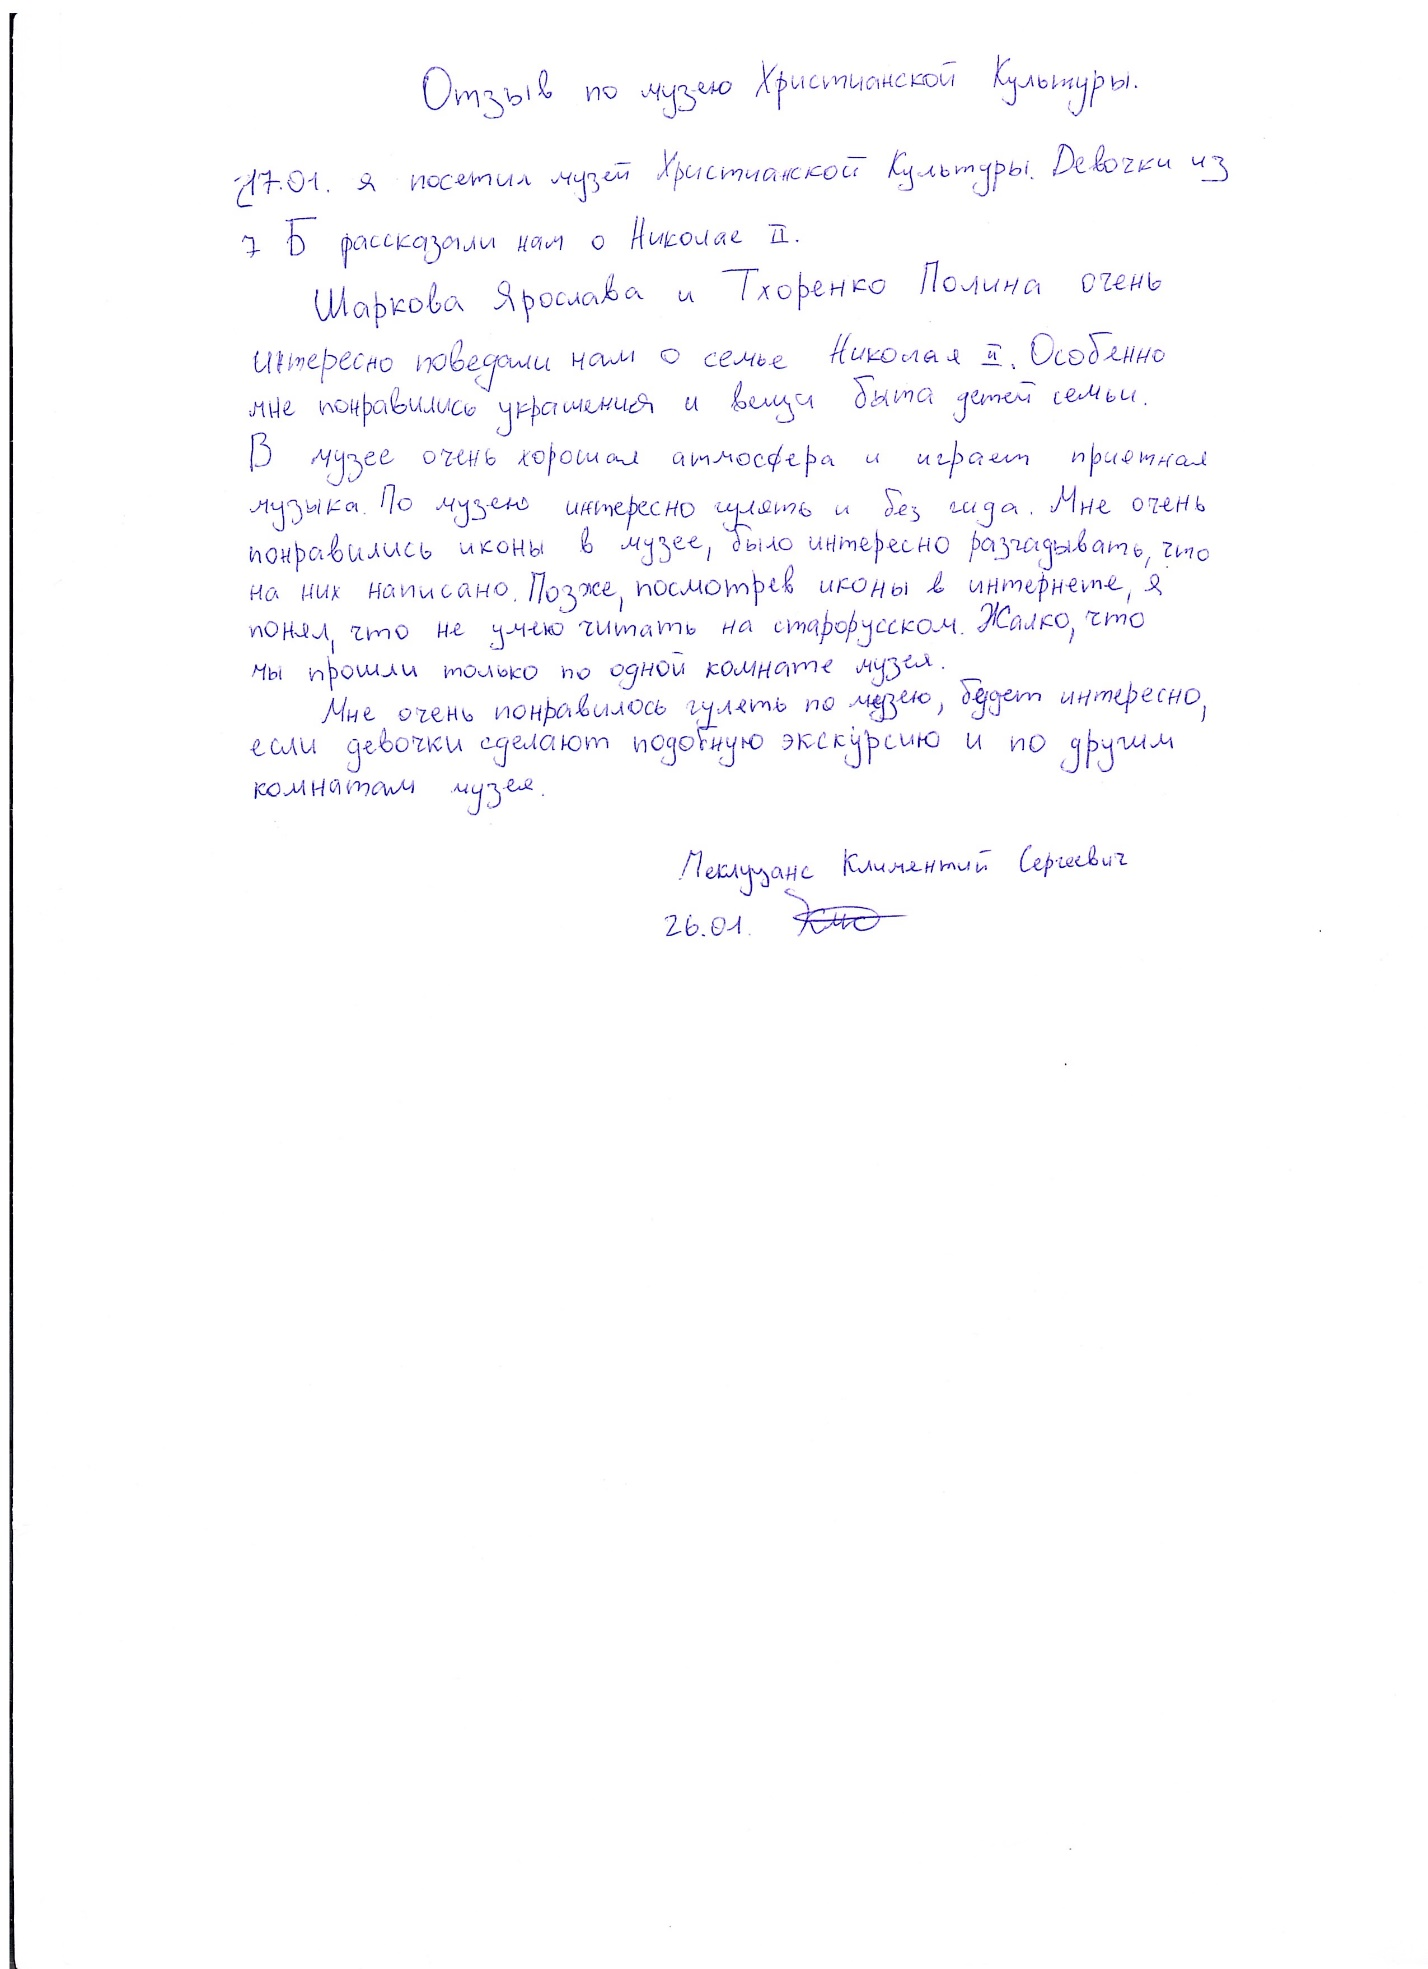 Отзыв по музею Христианской Культуры.
17.01. я посетил музей Христианской Культуры. Девочки из
7 Б рассказали нам о Николае II.
Шаркова Ярослава и Тхоренко Полина очень
интересно поведали нам о семье Николая II. Особенно
мне понравились украшения и вещи быта детей семьи.
В музее очень хорошая атмосфера и играет приятная
музыка. По музею интересно гулять и без гида. Мне очень
понравились иконы в музее, было интересно разгадывать, что
на них написано. Позже, посмотрев иконы в интернете, я
понял, что не умею читать на старорусском. Жалко, что
мы прошли только по одной комнате музея.
Мне очень понравилось гулять по музею, будет интересно,
если девочки сделают подобную экскурсию и по другим
комнатам музея.
Меклузанс Климентий Сергеевич
26.01.